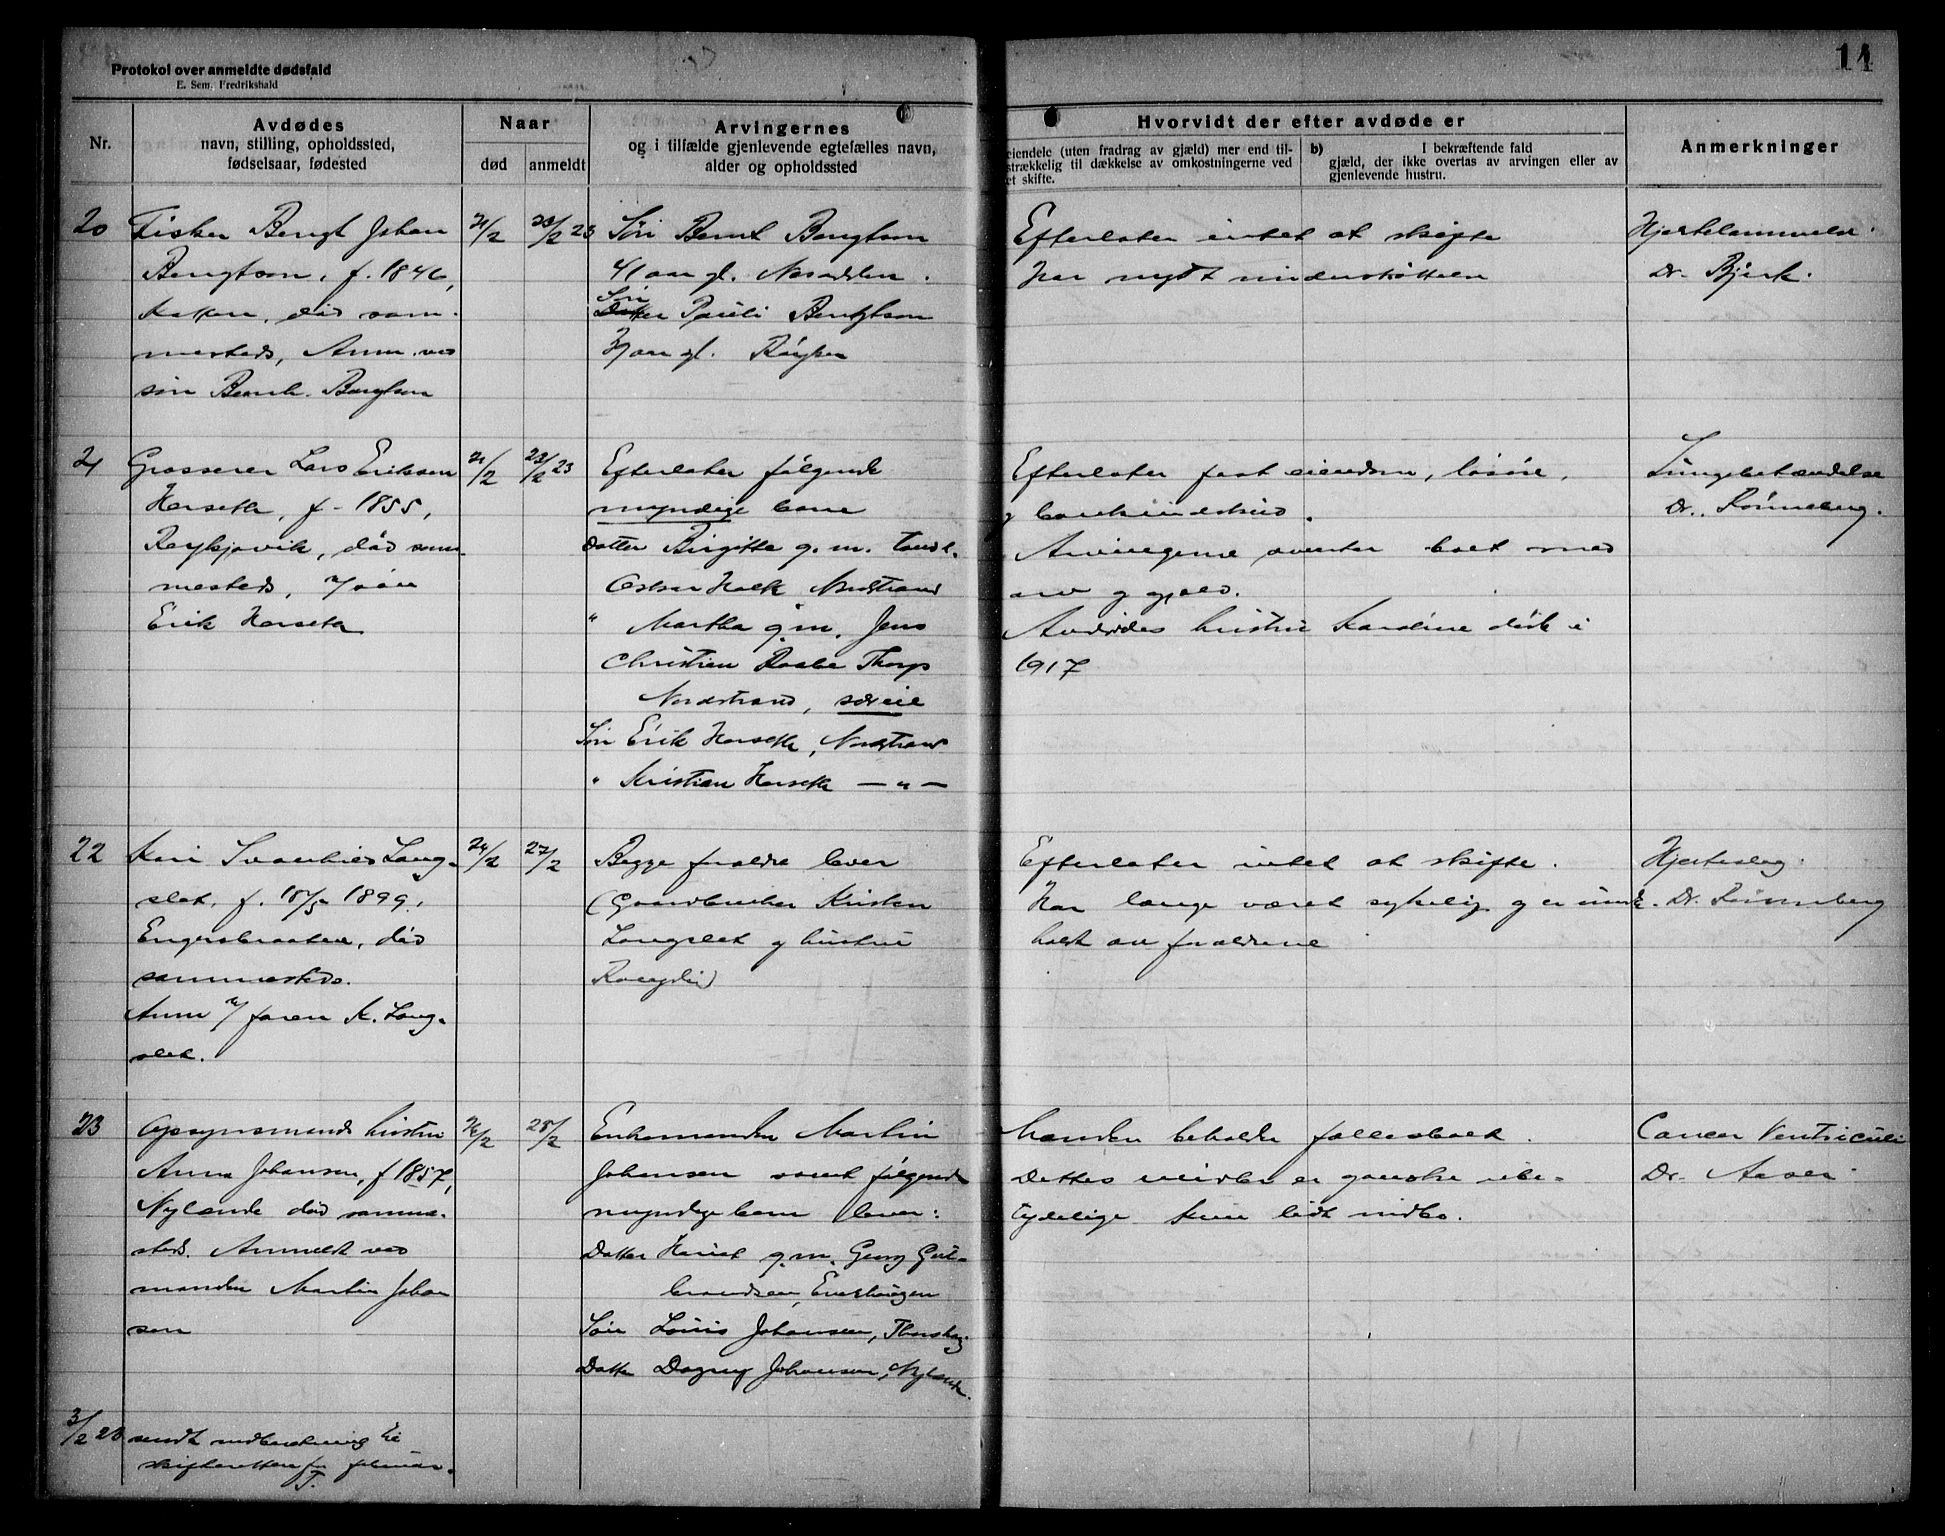 Protokol over anmeldte dødsfald
E. Sem. Fredrikshald
11
Nr.
Avdødes
navn, stilling, opholdssted,
fødselsaar, fødested
Naar
død
anmeldt
Arvingernes
og i tilfælde gjenlevende egtefælles navn,
alder og opholdssted
Hvorvidt der efter avdøde er
eiendele (uten fradrag av gjæld) mer end til-
strækkelig til dækkelse av omkostningerne ved
et skifte.
b) I bekræftende fald
gjæld, der ikke overtas av arvingen eller av
gjenlevende hustru.
Anmerkninger
20
Fisker Bengt Johan
Bengtson, f. 1846,
død sam-
mesteds, Anm. ved
søn Bernh. Bengtson
21/2
23/2 23
Søn Bernt Bengtson
41 aar gl. Nesodden.
Søn
Datter Pauli Bengtson
aar gl. Røyken
Efterlater intet at skifte
har nydt understøttelse
Hjertelammelse.
Dr. Bjerk.
21
Grosserer Lars Eriksen
Harseth, f. 1855,
Reykjavik, død sam-
mesteds, v/ søn
Erik Harseth
21/2
23/2 23
Efterlater følgende
myndige barn
Datter Birgitte g. m. Tandl.
Oskar Holk Nordstrand
" Martha g.m. Jens
Christian Raabe Thorp
Nordstrand, særeie
Søn Erik Harseth, Nordstrand
" Kristian Harseth — " —
Efterlater fast eiendom, løsøre,
g bankindskud.
Arvingerne overtar boet med
arv g gjæld.
Avdødes hustru Karoline døde i
1917
Lungebetændelse
Dr. Rønneberg.
22
Kari Lang-
slet, f. 18/5 1899,
Engersbraaten, død
sammesteds.
Anm v/ faren K. Lang-
slet.
24/2
27/2
Begge forældre lever
(Gaardbruker Kristen
Langslet g hustru
Efterlater intet at skifte.
Har længe været sykelig g er under-
holdt av forældrene
Hjerteslag.
Dr. Rønneberg
23
Opsynsmands hustru
Anna Johansen, f 1857,
Nylænde død samme-
steds. Anmeldt ved
manden Martin Johan
sen
26/2
28/2
Enkemanden Martin
Johansen samt følgende
myndige barn lever:
Datter Harriet g.m. Georg Gul-
brandsen, Enerhaugen
Søn Louis Johansen, Thorshaug
Datter Dagny Johansen, Nylænde.
Manden beholder fællesboet.
Dettes midler er ganske ube-
tydelige kun lidt indbo.
Cancer Ventriculi
Dr. Aaser.
3/2 23 sendt indberetning til
skifteretten for februar.
T.